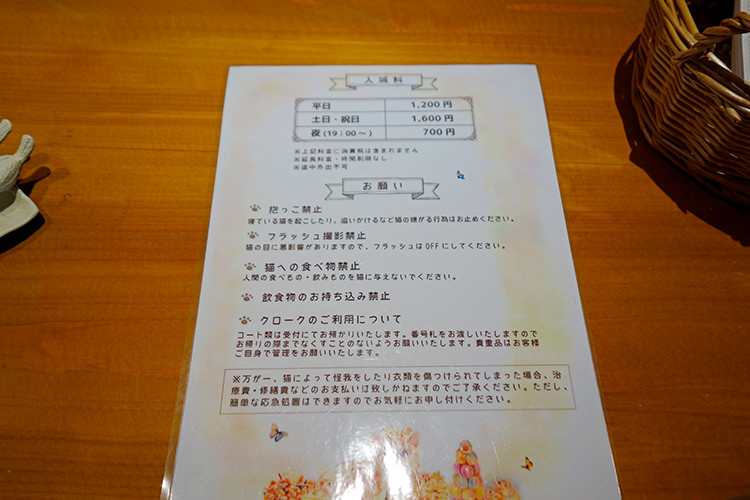 入城料
平日 1,200円
土日・祝日 1,600円
夜(19:00〜) 700円
※上記料金に消費税は含まれません
※延長料金・時間制限なし
※途中外出不可
お願い
抱っこ禁止
寝ている猫を起こしたり、追いかけるなど猫の嫌がる行為はお止めください。
フラッシュ撮影禁止
猫の目に悪影響がありますので、フラッシュはOFFにしてください。
猫への食べ物禁止
人間の食べもの・飲みものを猫に与えないでください。
飲食物のお持ち込み禁止
クロークのご利用について
コート類は受付にてお預かりいたします。番号札をお渡しいたしますので
お帰りの際までなくすことのないようお願いいたします。貴重品はお客様
ご自身で管理をお願いいたします。
※万が一、猫によって怪我をしたり衣類を傷つけられてしまった場合、治
療費・修繕費などのお支払いは致しかねますのでご了承ください。ただし、
簡単な応急処置はできますのでお気軽にお申し付けください。